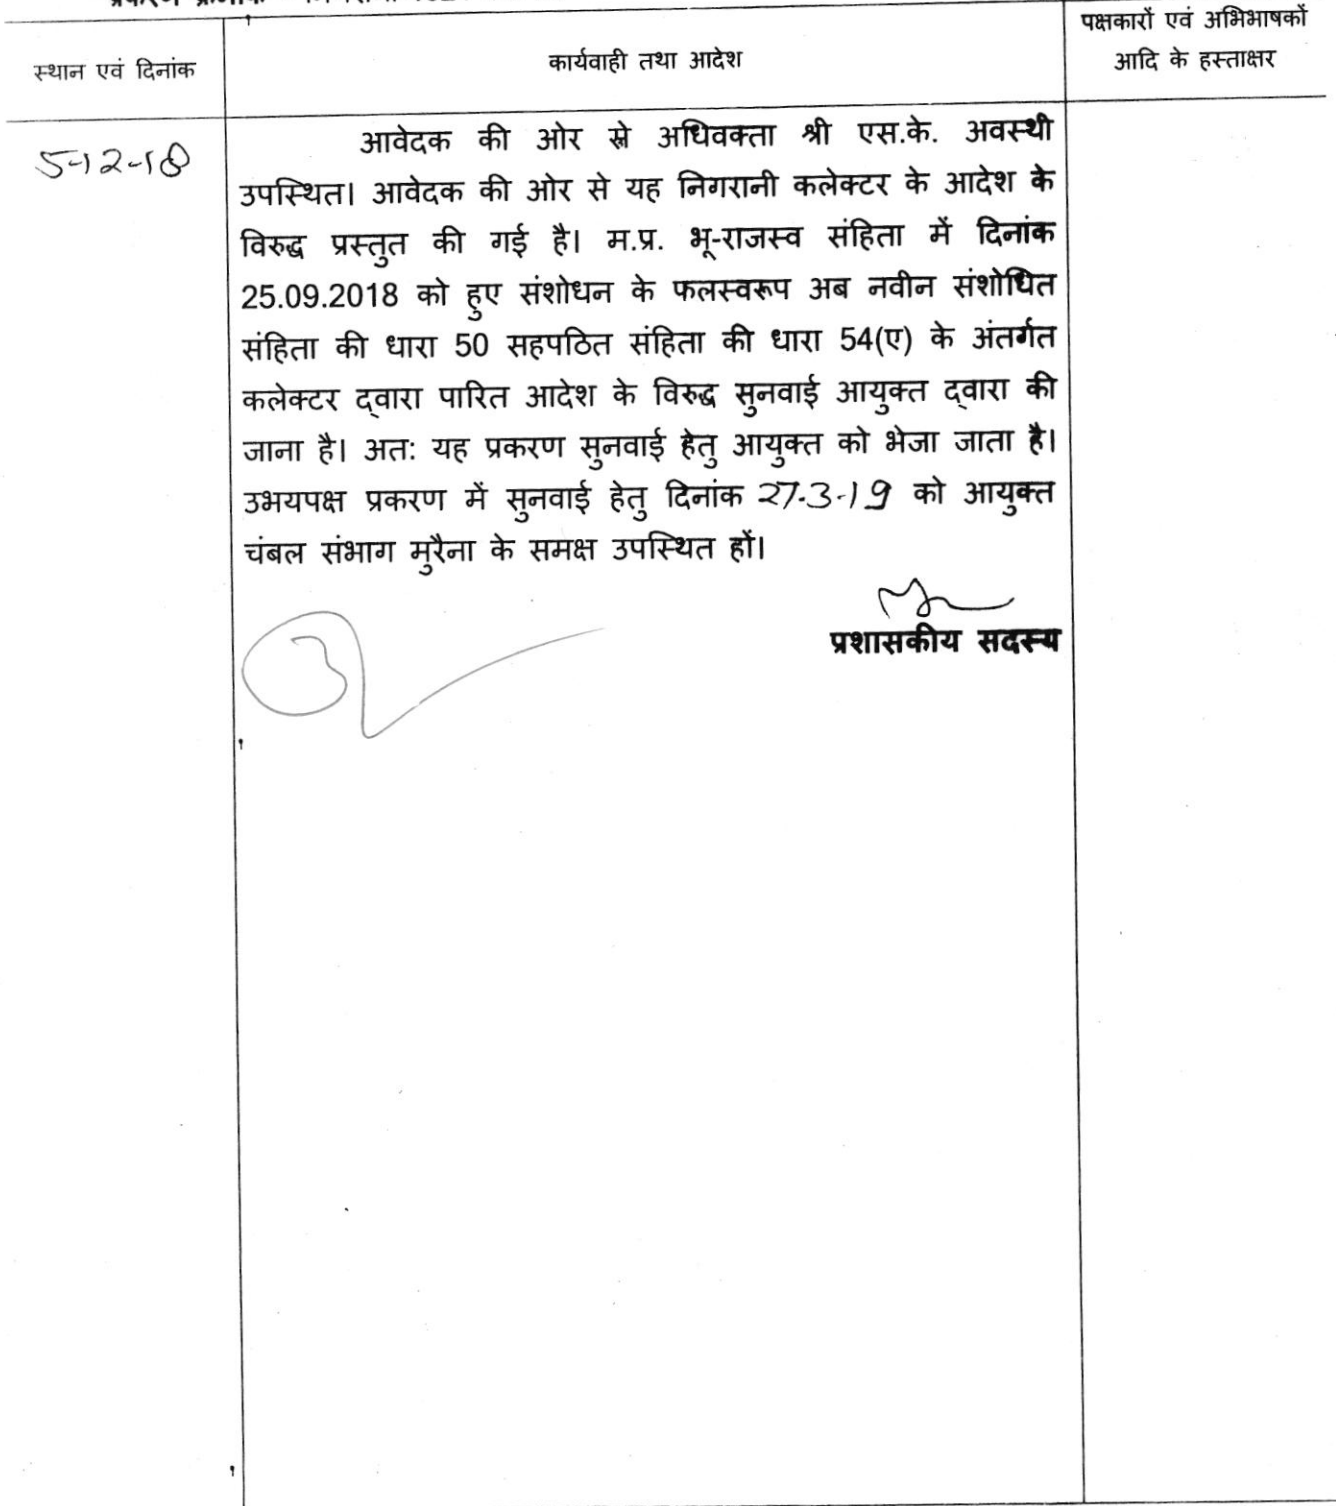 पक्षकारों एवं अभिभाषकों
आदि के हस्ताक्षर
स्थान एवं दिनांक
कार्यवाही तथा आदेश
5-12-18
आवेदक की ओर से अधिवक्ता श्री एस.के. अवस्थी
उपस्थित। आवेदक की ओर से यह निगरानी कलेक्टर के आदेश के
विरुद्ध प्रस्तुत की गई है। म.प्र. भू-राजस्व संहिता में दिनांक
25.09.2018 को हुए संशोधन के फलस्वरूप अब नवीन संशोधित
संहिता की धारा 50 सहपठित संहिता की धारा 54(ए) के अंतर्गत
कलेक्टर द्वारा पारित आदेश के विरुद्ध सुनवाई आयुक्त द्वारा की
जाना है। अतः यह प्रकरण सुनवाई हेतु आयुक्त को भेजा जाता है।
उभयपक्ष प्रकरण में सुनवाई हेतु दिनांक 27-3-19 को आयुक्त
चंबल संभाग मुरैना के समक्ष उपस्थित हों।
प्रशासकीय सदस्य